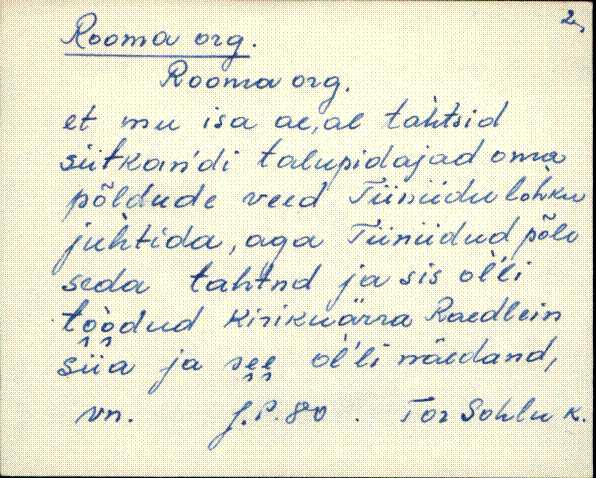 2.
Rooma org.
Rooma org.
et mu isa ae,al tahtsid
siitkandi talupidajad oma
põldude veed Tiiniidu lohku
juhtida, aga Tiiniidud põle
seda tahtnd ja sis ol'li
toodud kirikuärra Raedlein
siia ja see ol'li näedand,
vn. J.P. 80. Tor Sohlu k.